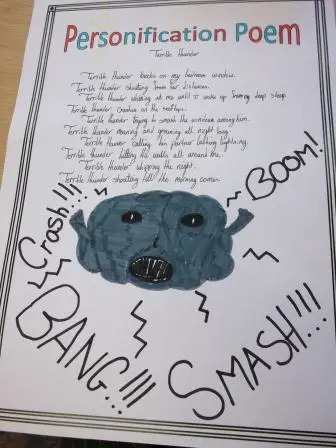 Personification Poem
Terrible thunder
Terrible thunder knocks on my bedroom window.
Terrible thunder shouting from the distance.
Terrible thunder wailing at me until I wake up from my deep sleep.
Terrible thunder on the rooftops.
Terrible thunder trying to smash the windows
Terrible thunder moaning and groaning all night long.
Terrible thunder calling his partner lightning.
Terrible thunder hitting the walls all around me.
Terrible thunder whipping the night.
Terrible thunder shouting till the morning comes.
Crash!!!
BOOM!
BANG!!!
SMASH!!!